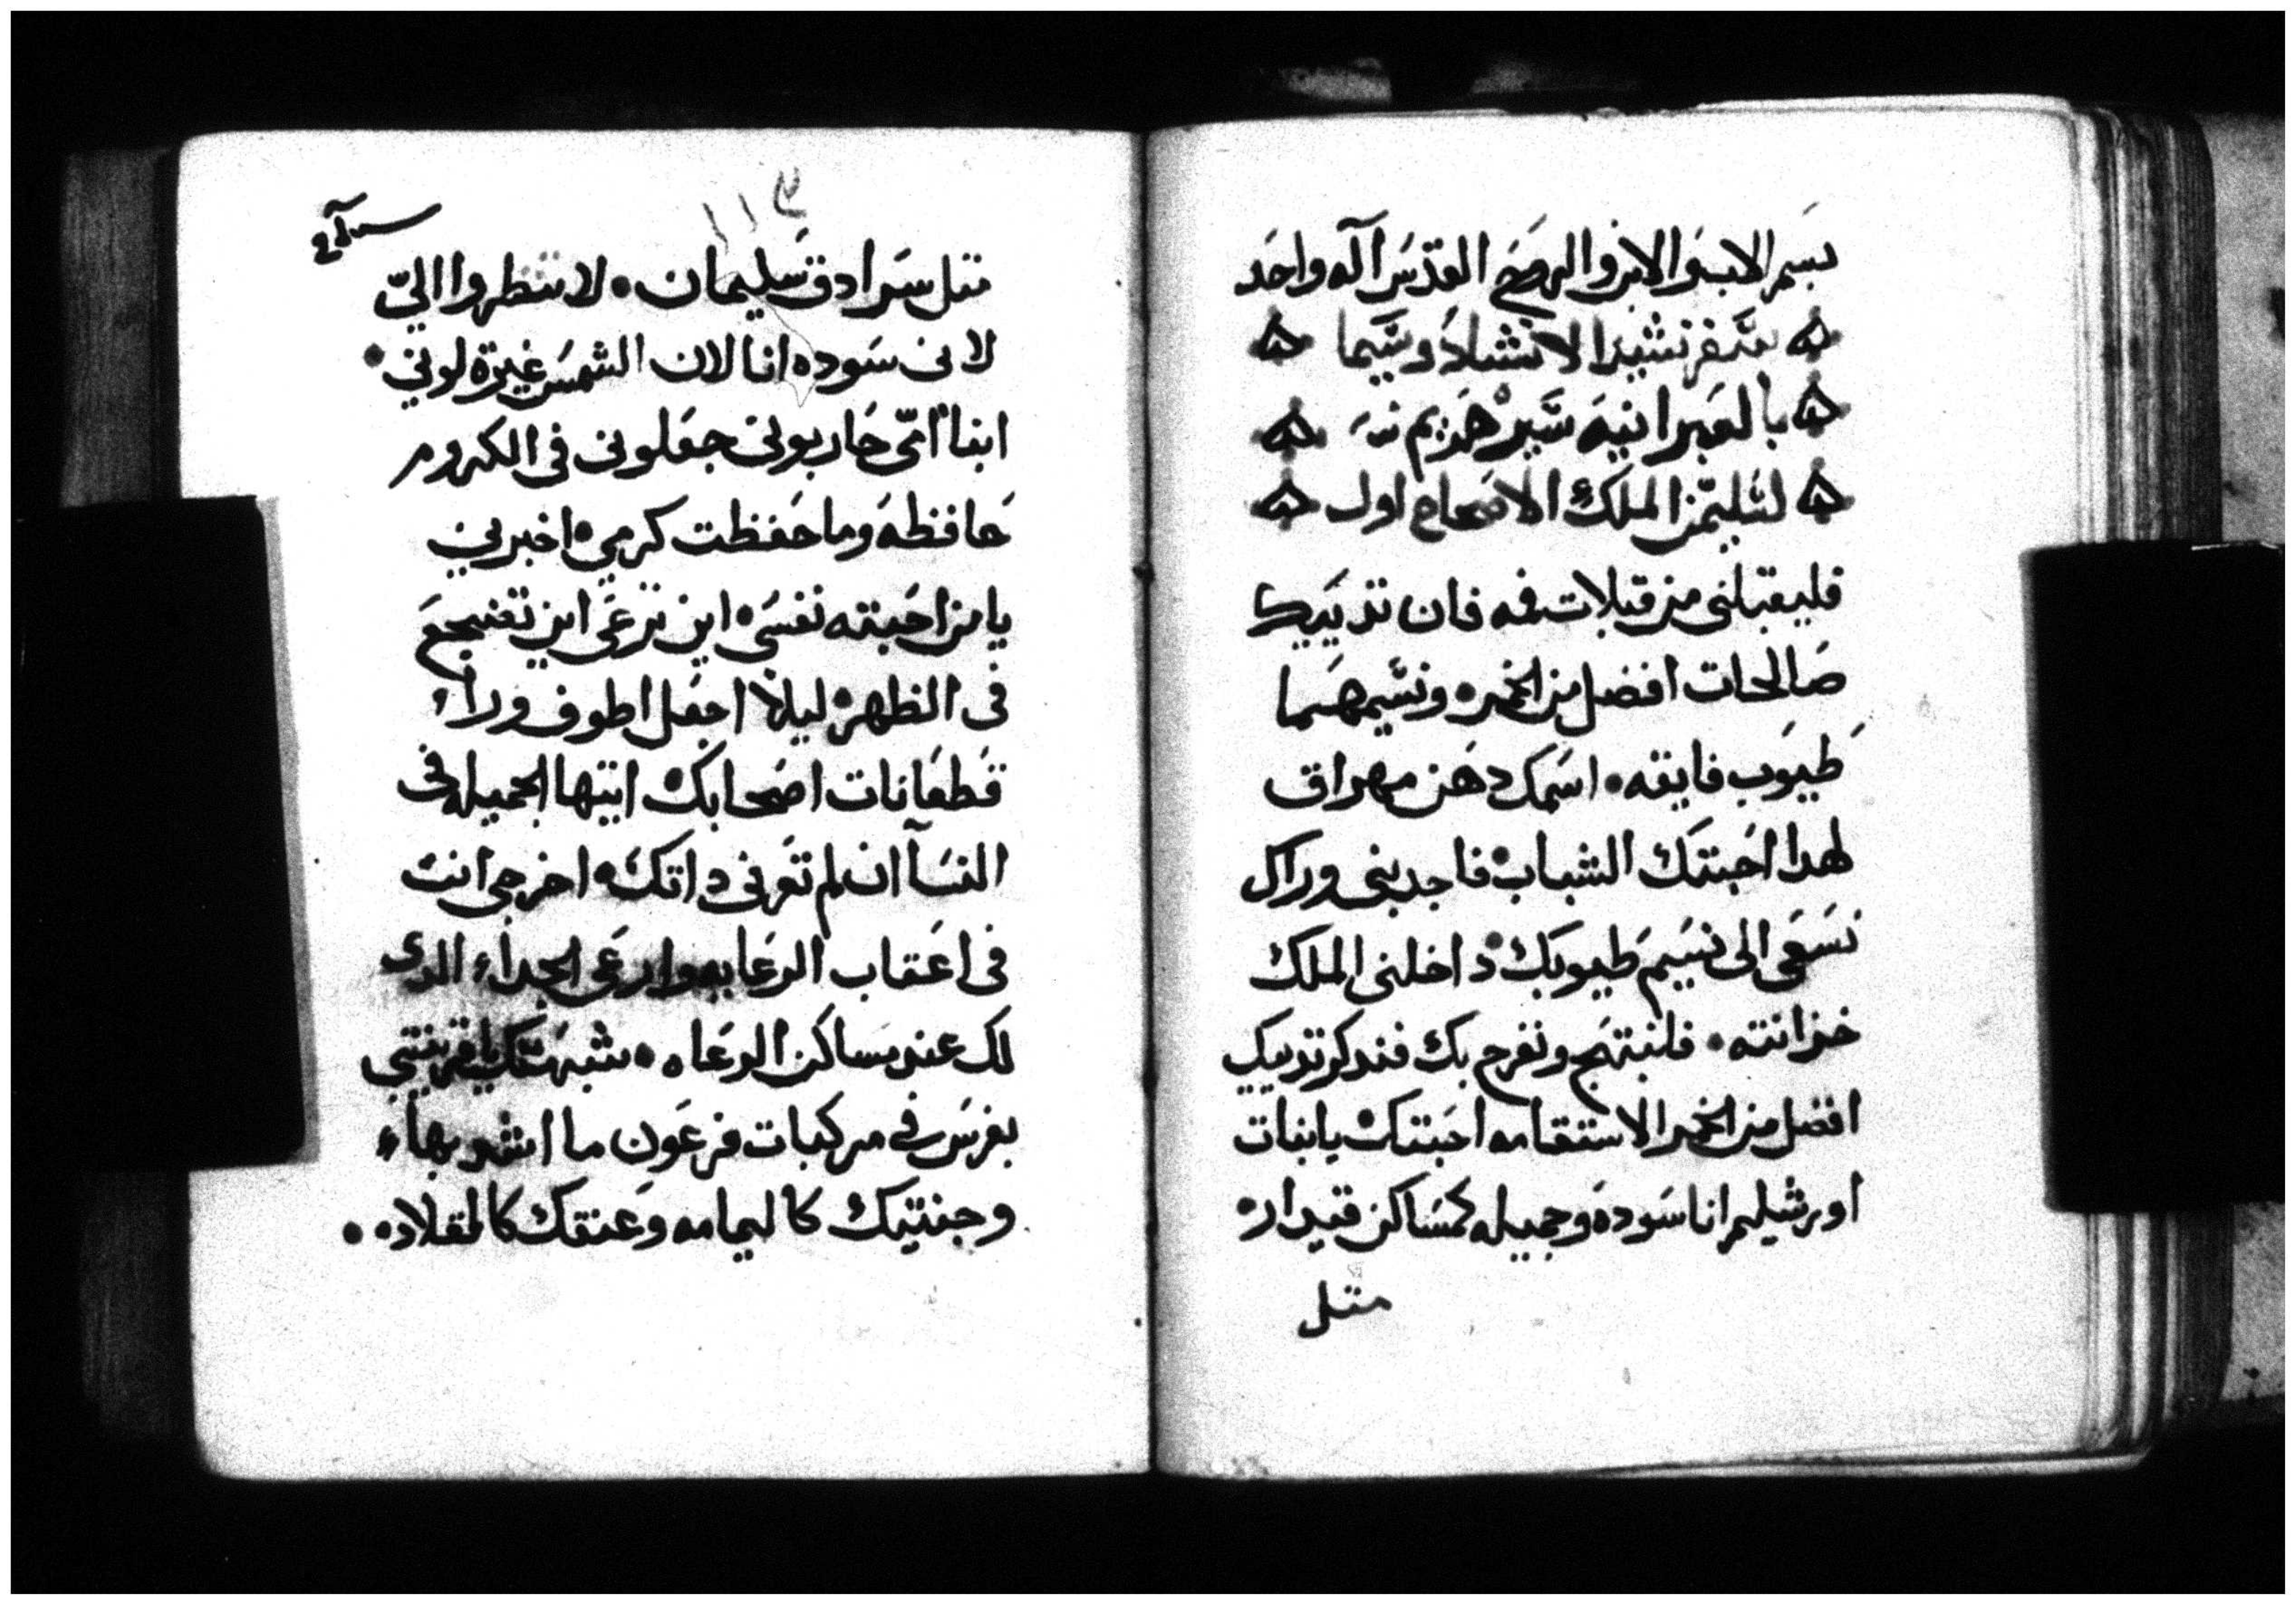 بسم الاب والابن والروح القدس اله واحد
سفر نشيد الانشاد وسيما
بالعبرانيه شير هزيم
لسليمن الملك الاصحاح اول
فليقبلني من قبلات فمه فان تدييك
صالحات افضل من الخمره ونسيمهما
طيوب فايقه • اسمك دهن مهراق
لهدا احبتك الشباب • فاجدبني وراك
نسعى الى نسيم طيوبك • داخلني الملك
خزانته • فلنبتهج ونفرح بك فندكر تدييك
افضل من الخمر الاستقامه احبتك • يابنات
اورشليم انا سوده وجميله كمساكن قيدار •
متل
١١٤
متل سرادق سليمان • لا تنظروا الىّ
لانى سوده انا لان الشمس غيرة لوني •
ابنا امّى حاربونى جعلونى فى الكروم
حافظه وما حفظت كرمي • اخبرني
يا من احبته نفسى • اين ترعى اين تضجع
فى الظهر • ليلا اجعل اطوف وراء
قطعانات اصحابك • ايتها الجميله فى
النسآ ان لم تعرفى داتك • اخرجى انت
فى اعقاب الرعايه وارعى الجداء الدى
لك عند مساكن الرعاه • شبهتك ياقرينتي
بفرس في مركبات فرعون ما اشد بهاء
وجنتيك كاليمامه وعنقك كالمقلاد • •